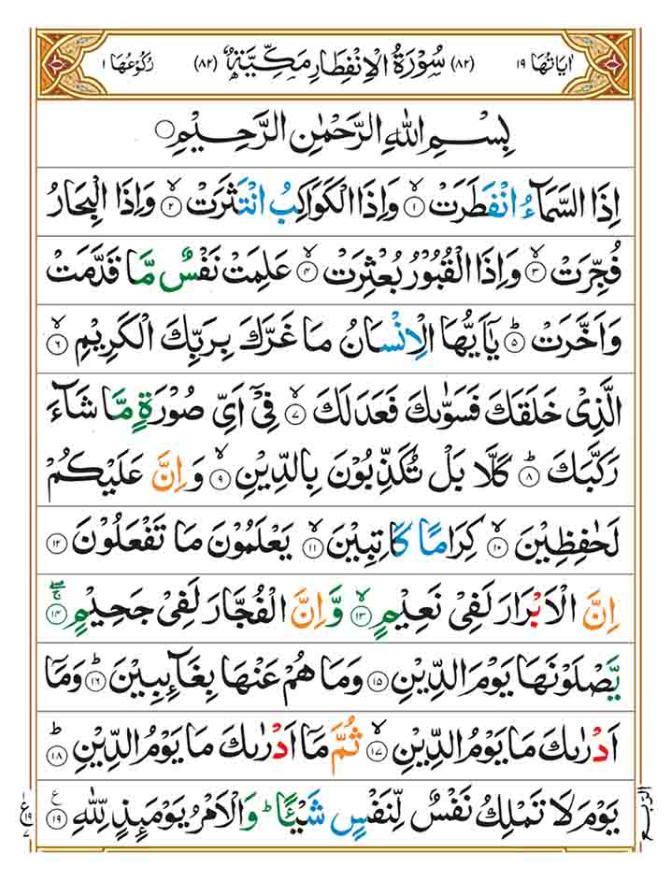 اٰيَاتُهَا ١٩ (٨٢) سُوْرَةُ الْاِنْفِطَارِ مَكِّيَّةٌ (٨٢) رُكُوْعُهَا ١
بِسْمِ اللّٰهِ الرَّحْمٰنِ الرَّحِيْمِ
اِذَا السَّمَآءُ انْفَطَرَتْ ۙ﴿١﴾ وَاِذَا الْكَوَاكِبُ انْتَثَرَتْ ۙ﴿٢﴾ وَاِذَا الْبِحَارُ
فُجِّرَتْ ۙ﴿٣﴾ وَاِذَا الْقُبُوْرُ بُعْثِرَتْ ۙ﴿٤﴾ عَلِمَتْ نَفْسٌ مَّا قَدَّمَتْ
وَاَخَّرَتْ ؕ﴿٥﴾ يٰۤاَيُّهَا الْاِنْسَانُ مَا غَرَّكَ بِرَبِّكَ الْكَرِيْمِ ۙ﴿٦﴾
الَّذِىْ خَلَقَكَ فَسَوّٰٮكَ فَعَدَلَكَ ۙ﴿٧﴾ فِىْۤ اَىِّ صُوْرَةٍ مَّا شَآءَ
رَكَّبَكَ ؕ﴿٨﴾ كَلَّا بَلْ تُكَذِّبُوْنَ بِالدِّيْنِ ۙ﴿٩﴾ وَاِنَّ عَلَيْكُمْ
لَحٰفِظِيْنَ ۙ﴿١٠﴾ كِرَامًا كَاتِبِيْنَ ۙ﴿١١﴾ يَعْلَمُوْنَ مَا تَفْعَلُوْنَ ﴿١٢﴾
اِنَّ الْاَبْرَارَ لَفِىْ نَعِيْمٍ ۙ﴿١٣﴾ وَّاِنَّ الْفُجَّارَ لَفِىْ جَحِيْمٍ ۚۖ﴿١٤﴾
يَّصْلَوْنَهَا يَوْمَ الدِّيْنِ ﴿١٥﴾ وَمَا هُمْ عَنْهَا بِغَآٮِٕبِيْنَ ؕ﴿١٦﴾ وَمَاۤ
اَدْرٰٮكَ مَا يَوْمُ الدِّيْنِ ۙ﴿١٧﴾ ثُمَّ مَاۤ اَدْرٰٮكَ مَا يَوْمُ الدِّيْنِ ؕ﴿١٨﴾
يَوْمَ لَا تَمْلِكُ نَفْسٌ لِّنَفْسٍ شَيْـًٔـا ؕ وَالْاَمْرُ يَوْمَٮِٕذٍ لِّلّٰهِ ﴿١٩﴾
الربع